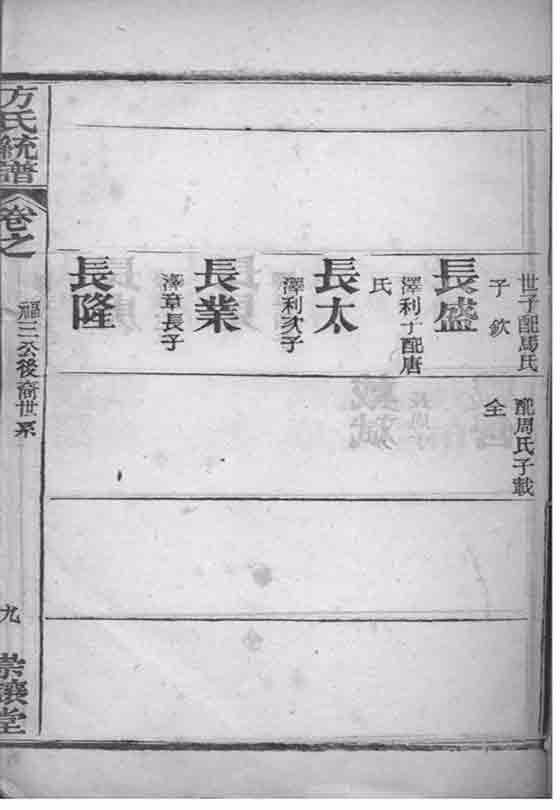 世子配馬氏
子欽
長盛
澤利子配唐
氏
長太
澤利次子
長業
澤章長子
長隆
配周氏子載
全
方氏統譜
卷之
福三公後裔世系
九
崇讓堂